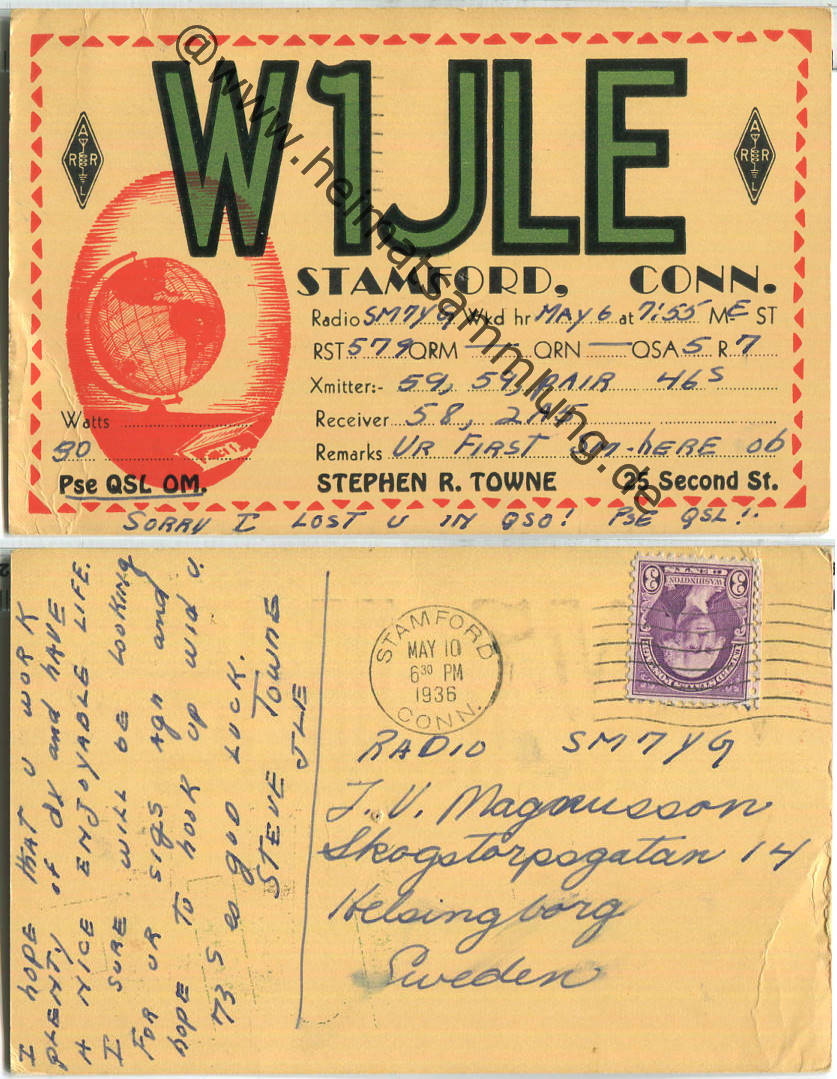 @www.heimatsammlung.de
W1JLE
A
R R
L
A
R R
L
STAMFORD, CONN.
Radio SM7YG Wkd hr MAY 6 at 7:55 M-E ST
RST 579 QRM — QRN — QSA 5 R 7
Xmitter:- 59, 59, PAIR 46S
Watts 90
Receiver 58, 2A5
Remarks UR FIRST SM-hERE OB
Pse QSL OM. STEPHEN R. TOWNE 25 Second St.
SORRY I LOST U IN QSO! PSE QSL!
I hOPE thAT U WORK
PLENTY of dX and HAVE
A NICE ENJOYABLE LIFE.
I SURE WILL bE LOOKING
FOR UR SIGS AGN and
hOPE TO hOOK UP WID U.
73 S es gud LUCK.
STEVE TOWNE
JLE
STAMFORD
MAY 10
6 30 PM
1936
CONN.
3 CENTS 3
WASHINGTON
UNITED STATES POSTAGE
RADIO SM7YG
J. V. Magnusson
Skogstorpsgatan 14
Helsingborg
Sweden